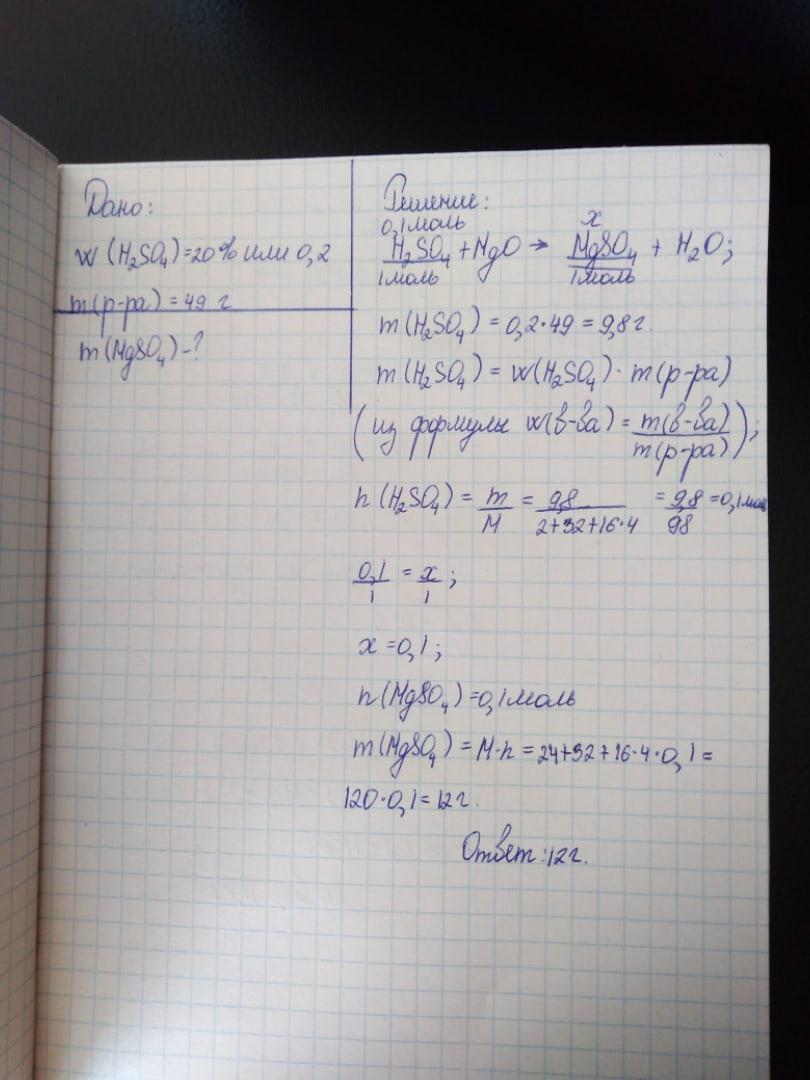 Дано:
w (H₂SO₄)=20% или 0,2
m(р-ра) = 49 г
m(MgSO₄)-?
Решение:
0,1моль x
H₂SO₄ + MgO → MgSO₄ + H₂O;
1моль 1моль
m(H₂SO₄) = 0,2·49 = 9,8г.
m(H₂SO₄) = w(H₂SO₄)· m(р-ра)
(из формулы w(в-ва) = m(в-ва)/m(р-ра));
n(H₂SO₄) = m/M = 9,8/2+32+16·4 = 9,8/98 =0,1моль
0,1/1 = x/1;
x =0,1;
n(MgSO₄)=0,1моль
m(MgSO₄) = M·n = 24+32+16·4·0,1=
120·0,1=12г.
Ответ:12г.